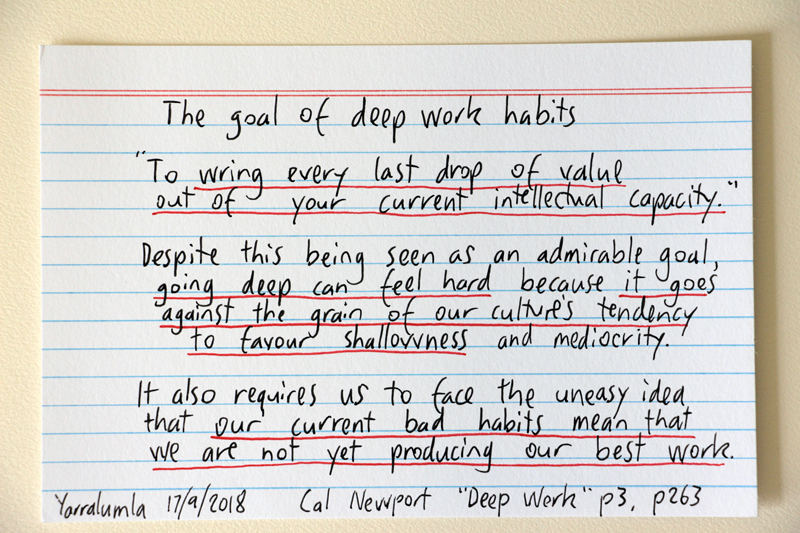 The goal of deep work habits
"To wring every last drop of value
out of your current intellectual capacity."
Despite this being seen as an admirable goal,
going deep can feel hard because it goes
against the grain of our culture's tendency
to favour shallowness and mediocrity.
It also requires us to face the uneasy idea
that our current bad habits mean that
we are not yet producing our best work.
Yarralumla 17/9/2018 Cal Newport "Deep Work" p3, p263